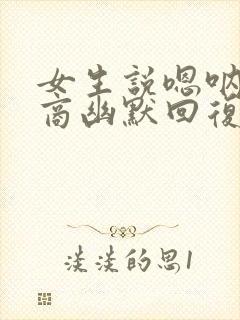 女生說嗯吶
高幽默回復
淡淡的思1